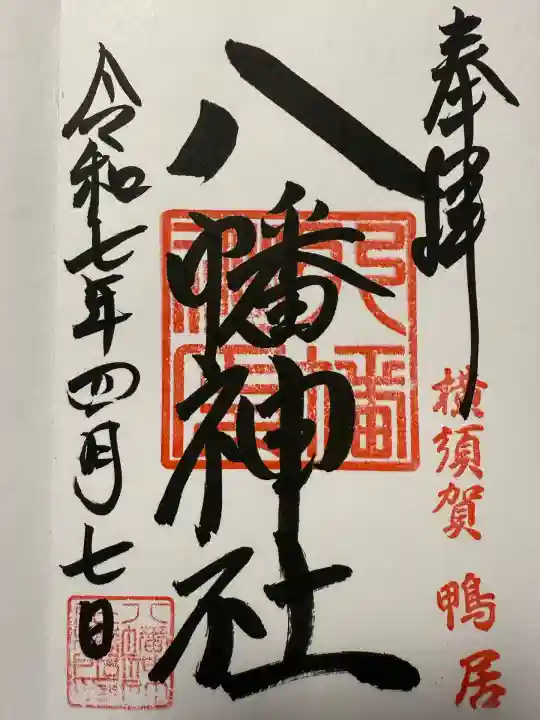 奉拝
横須賀 鴨居
八幡神社
令和七年四月七日